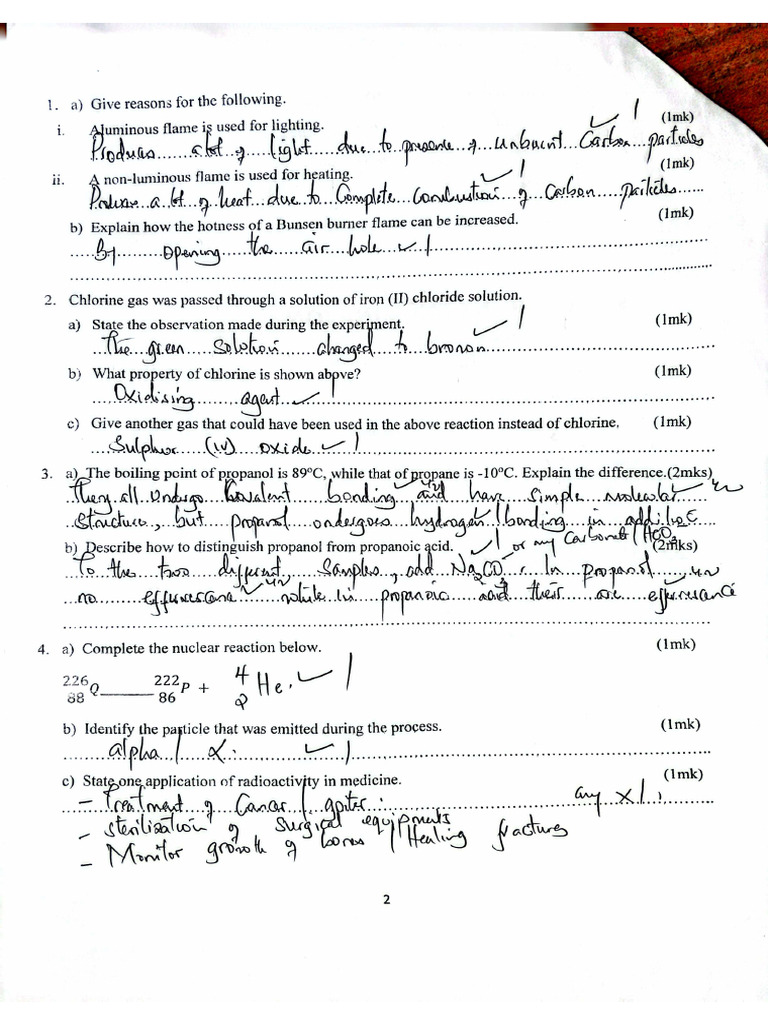 1. a) Give reasons for the following.
i. A luminous flame is used for lighting. ✓ 1 (1mk)
Produces a lot of light due to presence of unburnt Carbon particles
ii. A non-luminous flame is used for heating. ✓ 1 (1mk)
Produce a lot of heat due to Complete Combustion of Carbon particles
b) Explain how the hotness of a Bunsen burner flame can be increased. (1mk)
By opening the air hole ✓ 1
2. Chlorine gas was passed through a solution of iron (II) chloride solution.
a) State the observation made during the experiment. ✓ 1 (1mk)
The green solution changed to brown
b) What property of chlorine is shown above? (1mk)
Oxidising agent ✓ 1
c) Give another gas that could have been used in the above reaction instead of chlorine. (1mk)
Sulphur (iv) oxide ✓ 1
3. a) The boiling point of propanol is 89°C, while that of propane is -10°C. Explain the difference.(2mks)
They all undergo Covalent bonding ✓ ½ and have simple molecular ✓ ½
structure, but propanol undergoes hydrogen ✓ 1 bonding in addition
b) Describe how to distinguish propanol from propanoic acid. ✓ 1 or any Carbonate / HCO₃ (2mks)
To the two different samples, add Na₂CO₃. In propanol
no effervescence ✓ ½ while in propanoic acid their are effervescence ✓ ½
4. a) Complete the nuclear reaction below. (1mk)
226 88 Q ——— 222 86 P + 4 2 He. ✓ 1
b) Identify the particle that was emitted during the process. (1mk)
alpha / α. ✓ 1
c) State one application of radioactivity in medicine. (1mk)
- Treatment of Cancer / goiter. any x 1
- Sterilization of surgical equipments
- Monitor growth of bones / Healing fractures
2